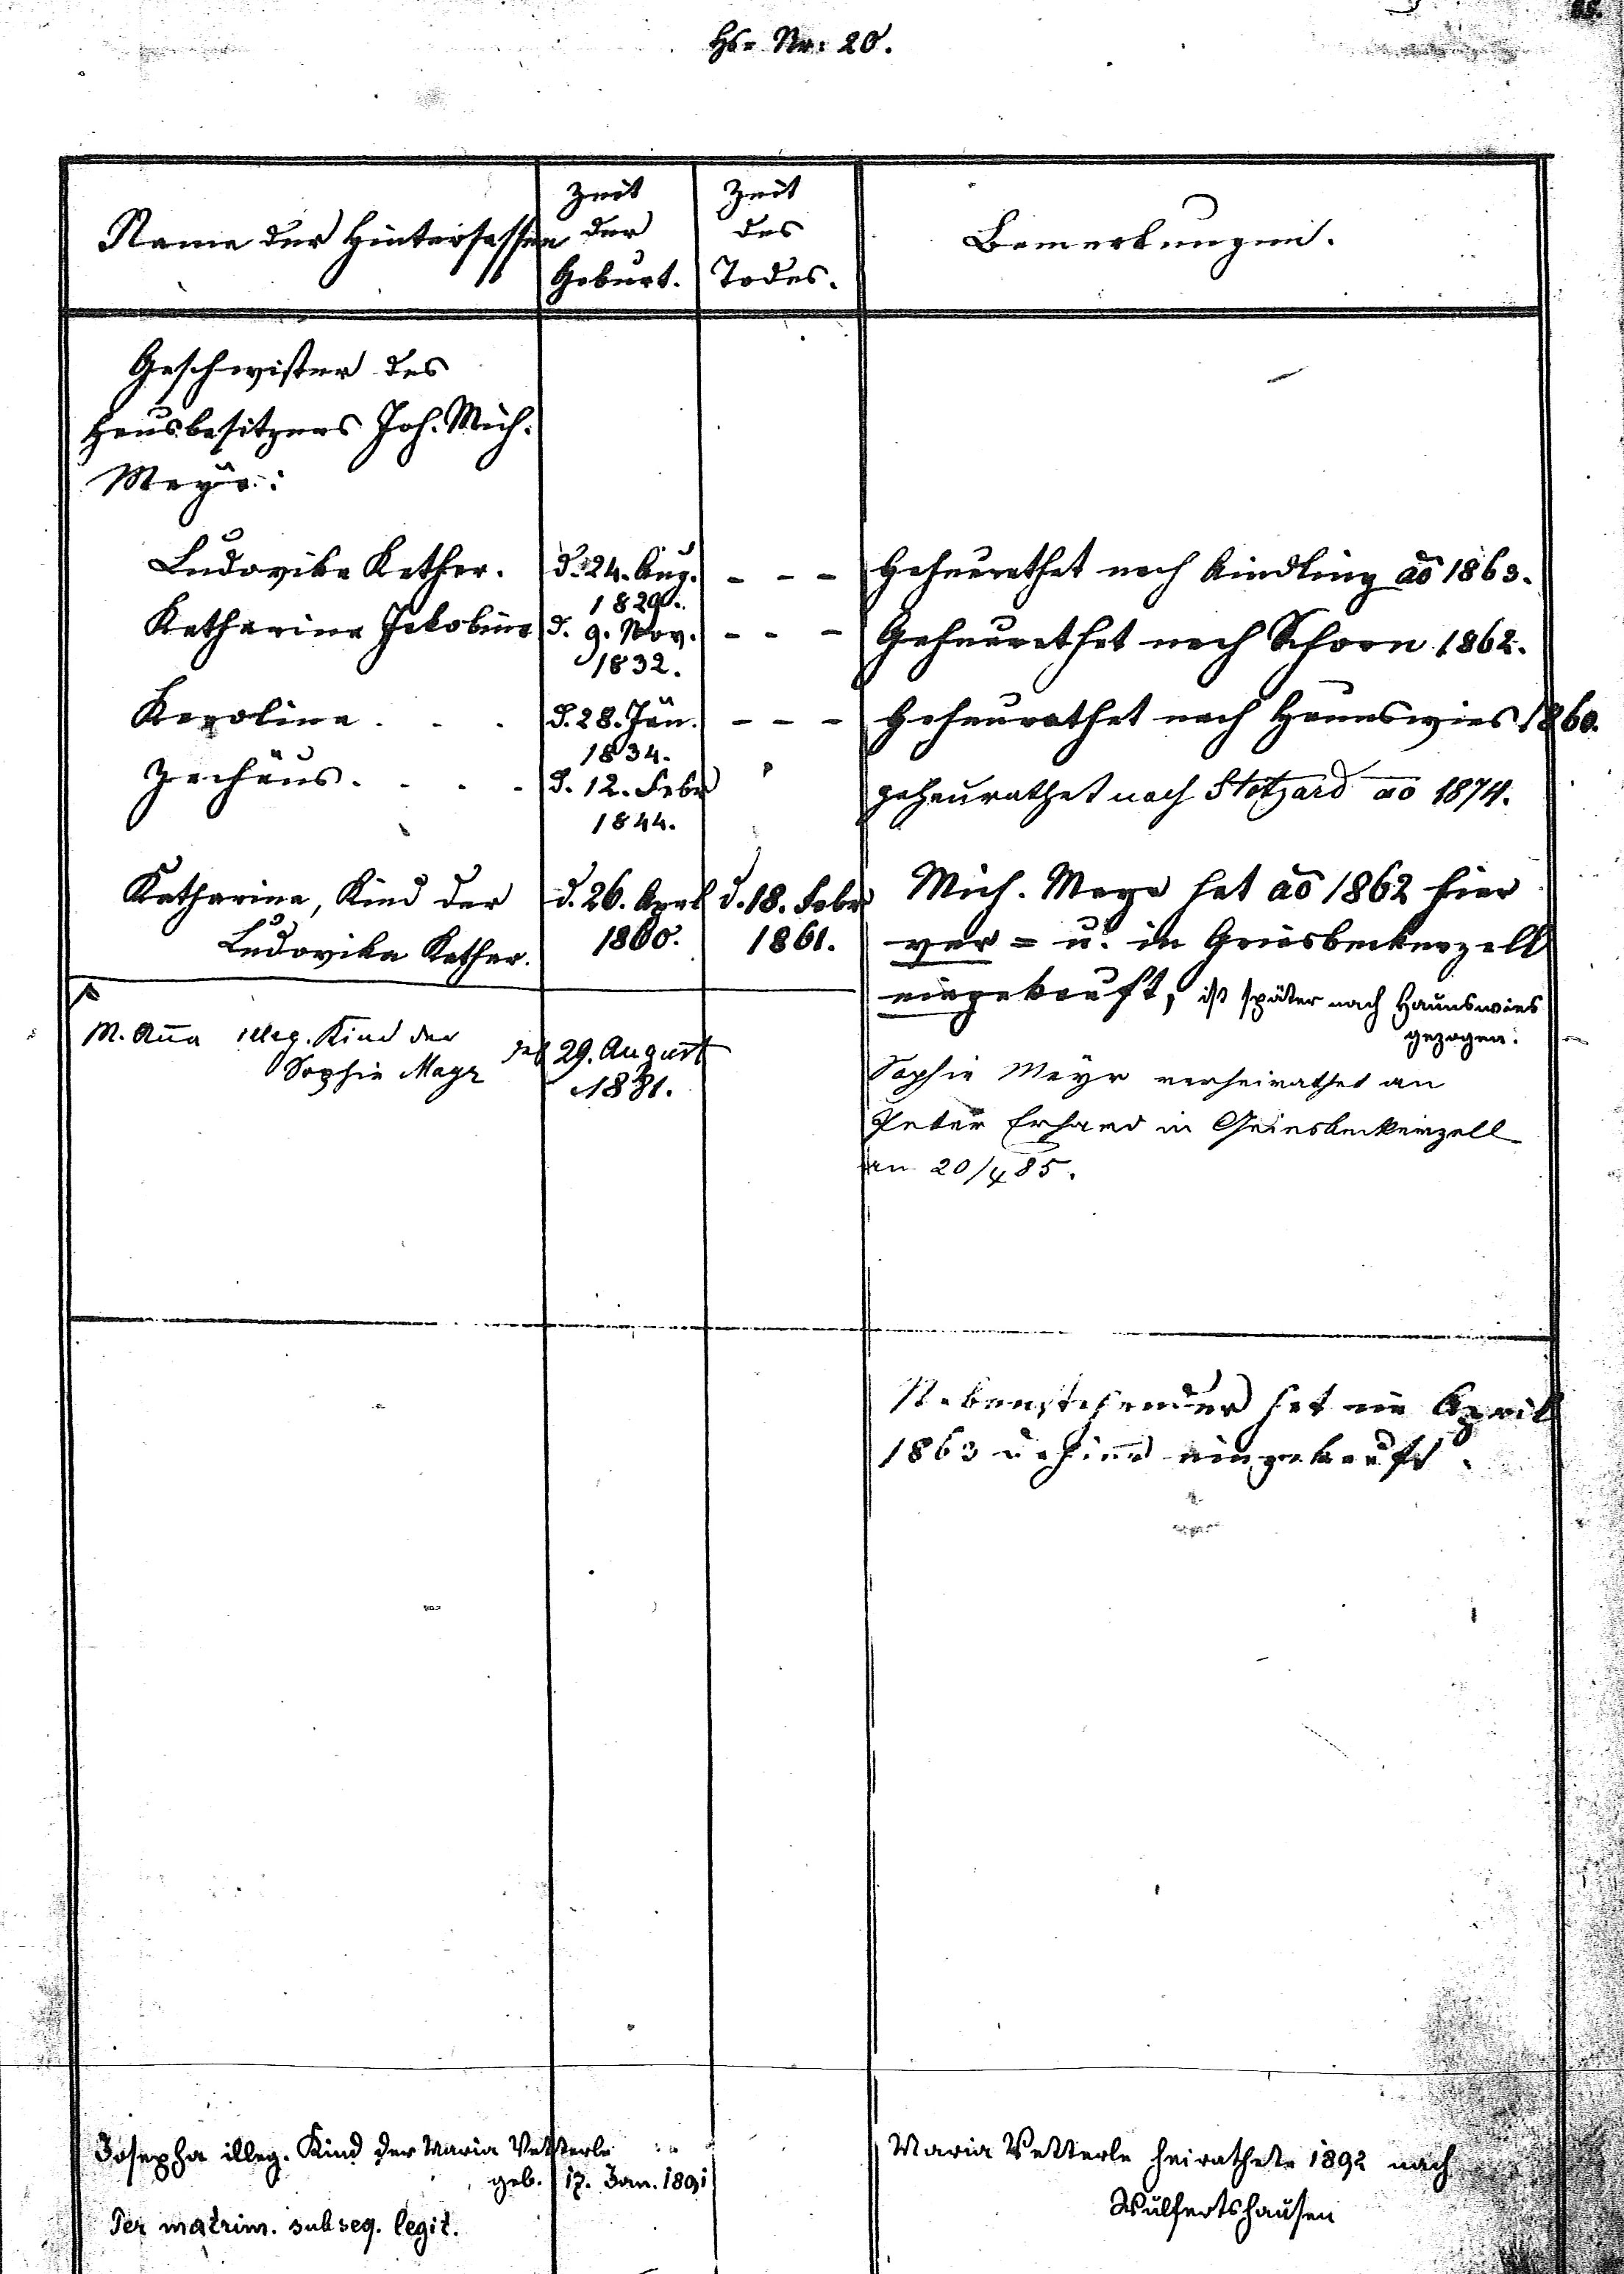 Hs. Nr. 20.
Name der Hintersassen
Zeit
der
Geburt.
Zeit
des
Todes.
Bemerkungen.
Geschwister des
Hausbesitzers Joh. Mich.
Mayr:
Ludovika Kathar. d. 24. Aug. 1829. - - - Geheurathet nach Aindling ao 1863.
Katharina Jakobina d. 9. Nov. 1832. - - - Geheurathet nach Schorn 1862.
Karolina . . . d. 28. Jän. 1834. - - - Geheurathet nach Haunswies 1860.
Zachäus. . . . d. 12. Febr 1844. geheurathet nach Stotzard ao 1874.
Katharina, Kind der
Ludovika Kathar.
d. 26. April
1860.
d. 18. Febr
1861.
Mich. Mayr hat ao 1862 hier
ver = u. in Griesbeckerzell
eingekauft, ist später nach Haunswies
gezogen.
M. Anna illeg. Kind der
Sophie Mayr
geb 29. August
1881.
Sophie Mayr verheirathet an
Peter Erhard in Griesbeckerzell
am 20/4 85.
Nebenstehender hat im April
1863 dahier eingekauft.
Josepha illeg. Kind der Maria Vetterle
geb. 17. Jan. 1891
Per matrim. subseq. legit.
Maria Vetterle heirathete 1892 nach
Wulfertshausen